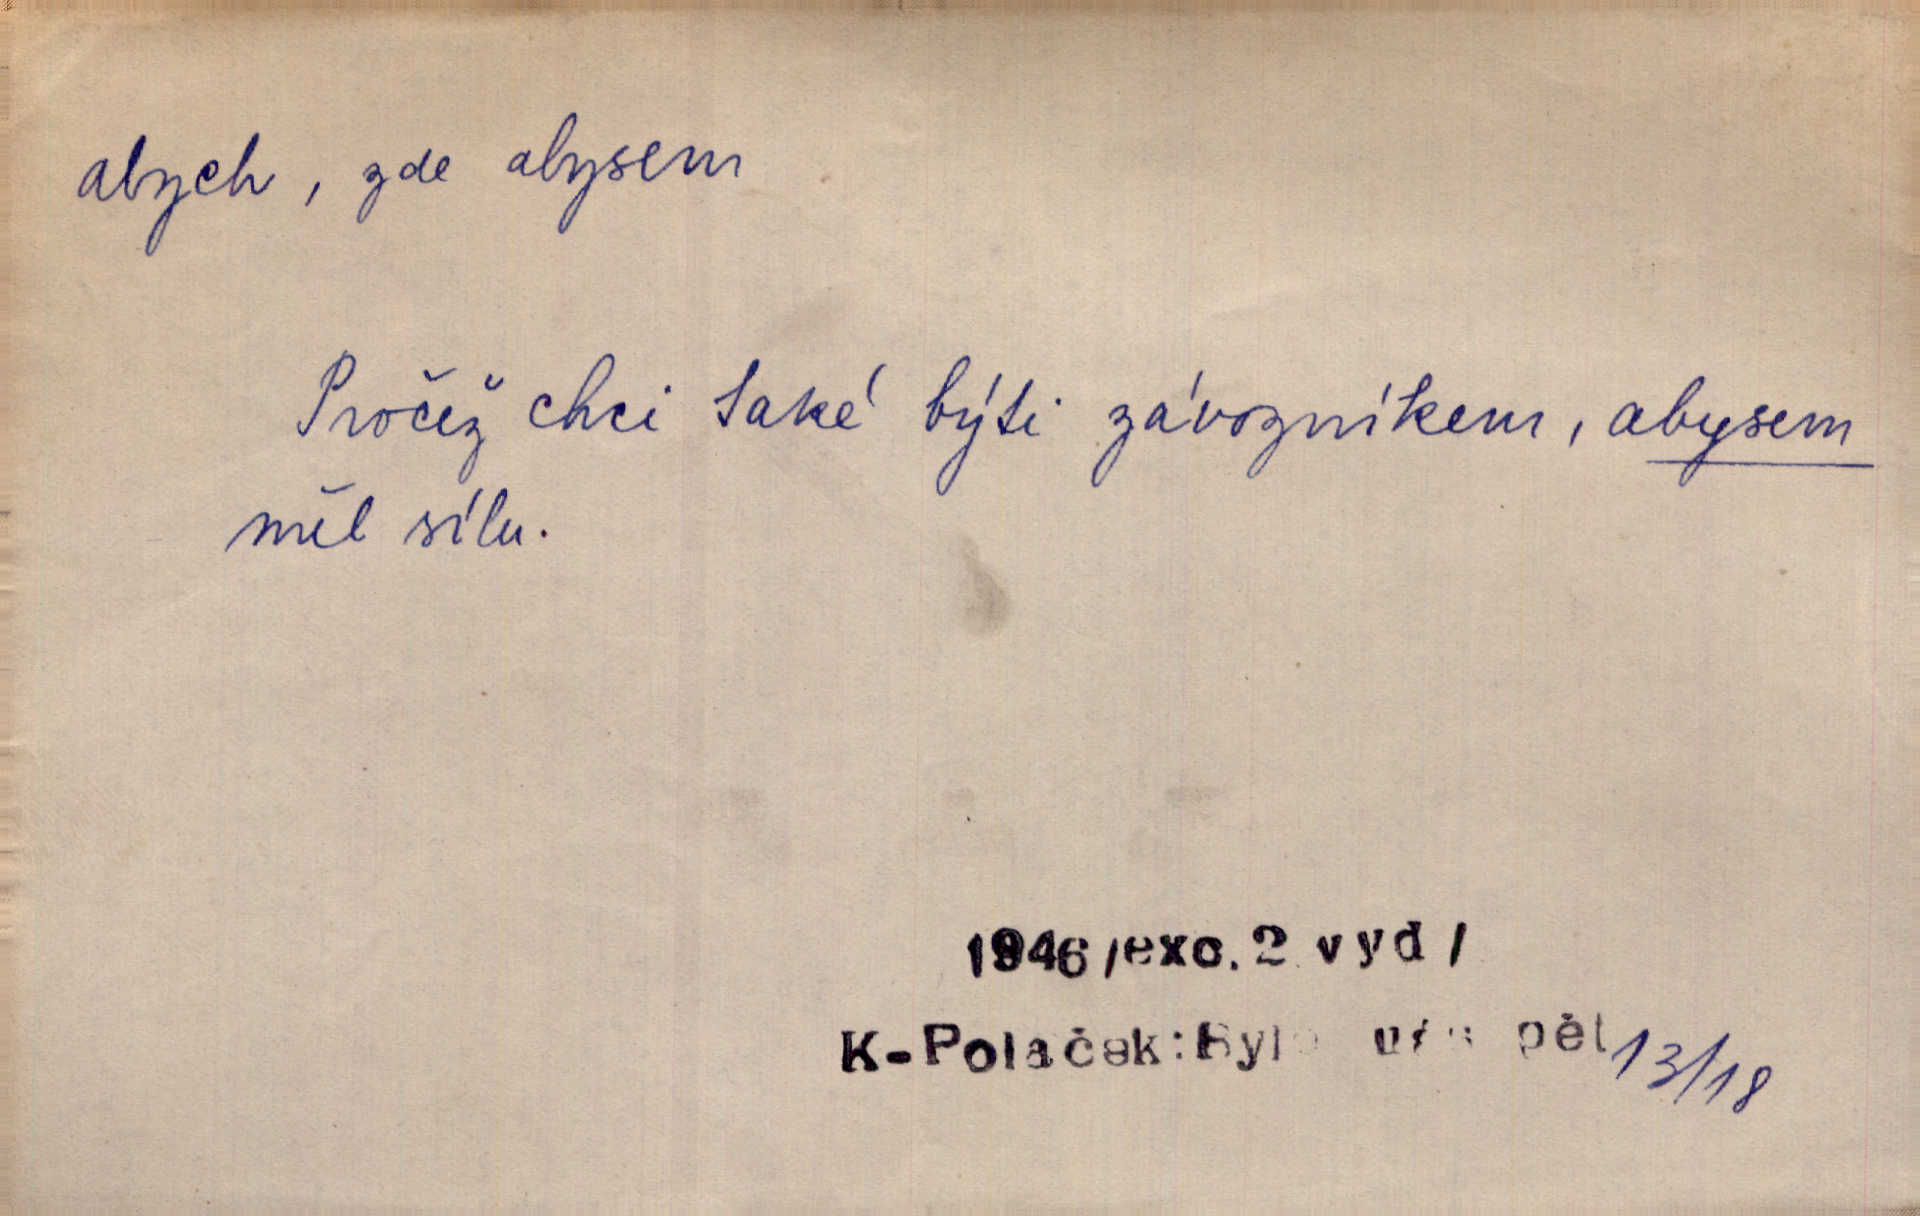 abych, zde abysem
Pročež chci také býti závozníkem, abysem
měl sílu.
1946/exc.2 vyd/
K-Poláček:Bylo nás pět 13/18